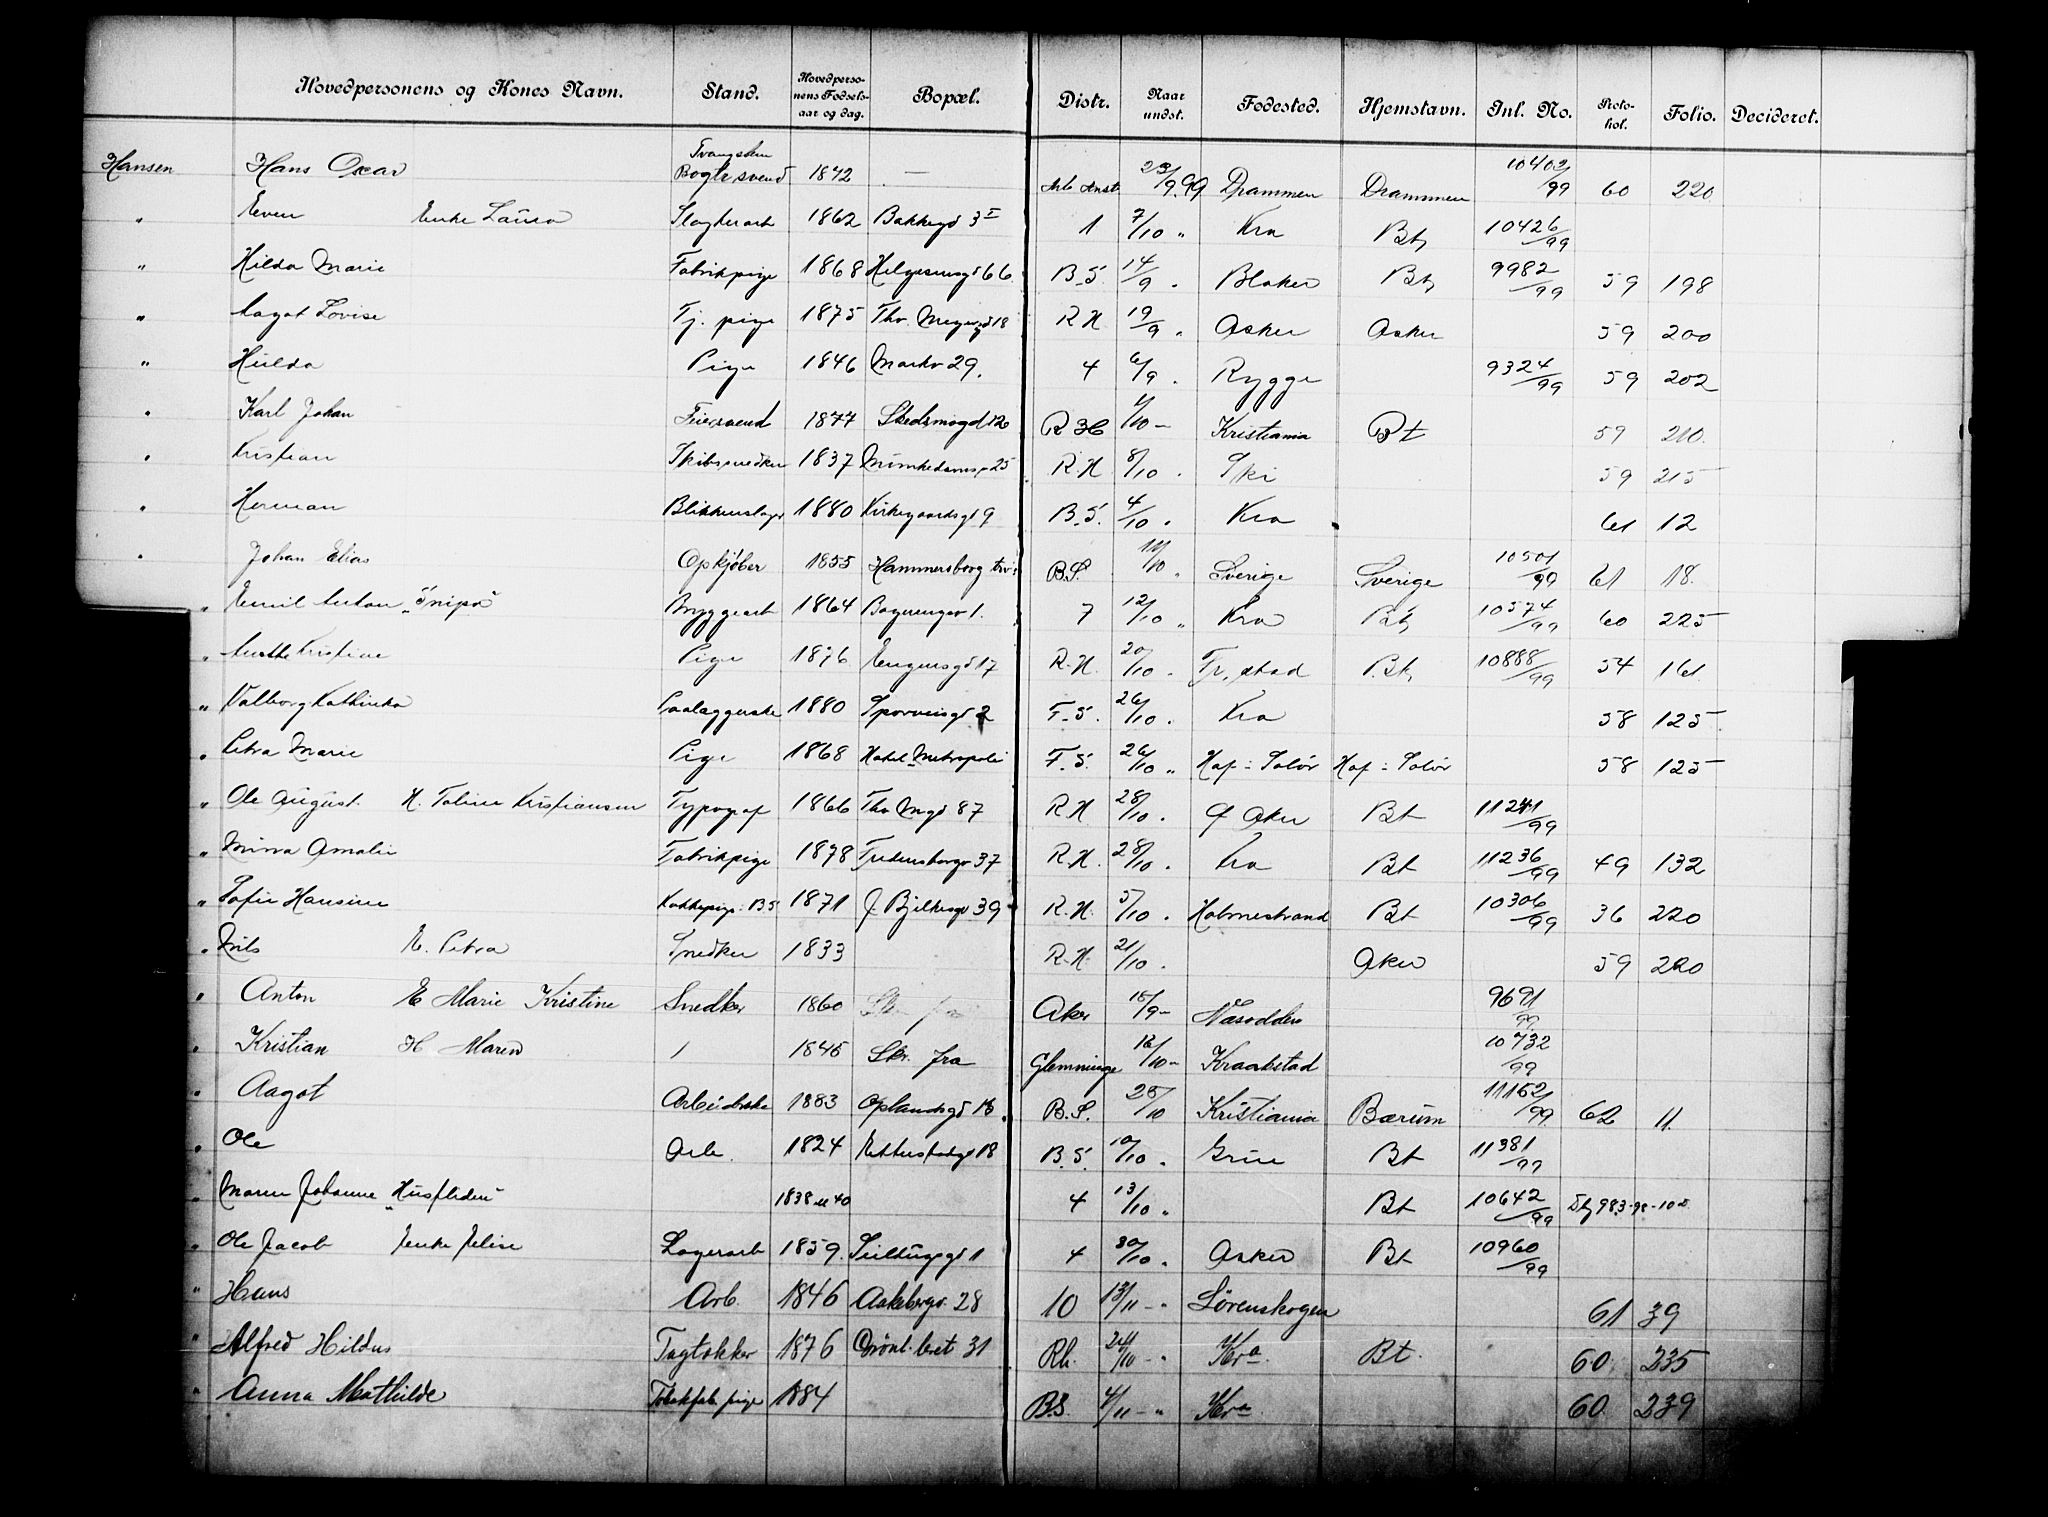 Hovedpersonens og Kones Navn. Stand. Hovedpersonens Fødselsaar og dag. Bopæl. Distr. Naar undst. Fødested. Hjemstavn. Inl. No. Protokol. Folio. Decideret.
Hansen Hans Oscar Bogtr svend 1842 — Arb Anst 23/9 99 Drammen Drammen 10402/99 60 220
" Even Enke Laura Slagterarb 1862 Bakkegd 3 I 1 7/10 " Kra Bt, 10426/99
" Hilda Marie Fabrikpige 1868 Helgesensgd 66 B.S. 14/9 " Blaker Bt, 9982/99 59 198
" Aagot Lovise Tj. pige 1875 Thv. Meyersgd 18 R.H. 19/9 " Asker Asker 59 200
" Hulda Pige 1846 Markv 29. 4 6/9 " Rygge 9324/99 59 202
" Karl Johan Feiersvend 1877 Skedsmogd 12 R H /10 — Kristiania Bt 59 210.
" Kristian Skibssnedker 1837 Munkedamsv 25 R.H. 8/10 " Ski 59 215
" Herman Blikkenslager 1880 Kirkegaardsgd 9 B.S. 4/10 " Kra 61 12
" Johan Elias Opkjøber 1855 Hammersborg trv B.S. /10 " Sverige Sverige 10501/99 61 18.
" Emil Anton "Snipa" Bryggearb 1864 Bogerengev 1. 7 12/10 " Kra Bt, 10574/99 60 225
" Anthe Kristine Pige 1876 Eugensgd 17 R.H. 20/10 " Fr. stad Bt, 10888/99 54 161.
" Valborg Kathinka Paalæggerske 1880 Sporveisgd 2 F.S. 26/10 " Kra 58 125.
" Petra Marie Pige 1868 Hotel Metropole F.S. 26/10 " Hof i Solør Hof i Solør 58 125
" Ole August. H. Toline Kristiansen Typograf 1866 Thv Mgd 87 R.H. 28/10 " Ø Aker Bt 11241/99
" Minna Amalie Fabrikpige 1878 Fredensborgv 37 R.H. 28/10 " Kra Bt 11236/99 49 132
" Sofie Hansine Kokkepige i BS 1871 J. Bjelkesgd 39 R.H. 5/10 " Holmestrand Bt 10306/99 36 220
" Nils E. Petra Snedker 1833 R.H. 21/10 " Aker 59 220
" Anton E Marie Kristine Snedker 1860 Aker 15/9 — Næsodden 9691/99
" Kristian H Maren 1845 Skr. fra Glemminge 12/10 — Kraakstad 10732/99
" Aagot Arbeiderske 1883 Oplandsgd 18 B.S. 25/10 Kristiania Bærum 11152/99 62 11.
" Ole Arb. 1824 Rettersfadsgd 18 B.S. 10/10 " Grue Bt 11381/99
" Maren Johanne "Husfliden" 1838 el 40 4 13/10 " Bt 10642/99 983-98-10
" Ole Jacob Enke Jelise Lagerarb 1859. Seildugsgd 1 4 30/10 " Asker Bt 10960/99
" Hans Arb. 1846 Aakebergv. 28 10 13/11 — " Lørenskogen 61 39
" Alfred Hildus Tagtækker 1876 Grønl. leret 31 Rh. 24/10 — " Kra. Bt. 60 235
" Anna Mathilde Tobakfab. pige 1884 B.S. 4/11 — " Kra. 60 239